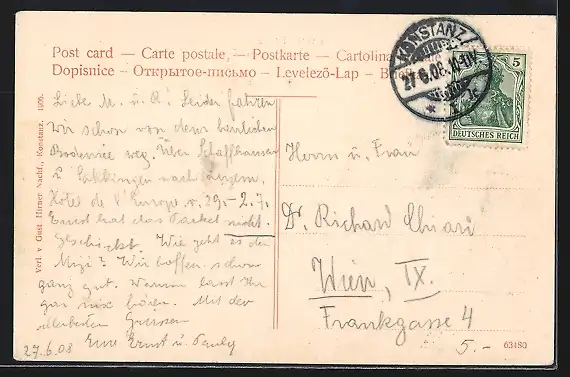 Post card — Carte postale, — Postkarte — Cartolina
Dopisnice — Открытое-письмо — Levelező-Lap —
KONSTANZ
27.6.08.
5
DEUTSCHES REICH
Verl. v. Gust. Hirner Nachf., Konstanz.
Liebe M. u. R.! Leider fahren
wir schon von dem herrlichen
Bodensee weg. Über Schaffhausen
nach Luzern,
Hotel de l'Europe v. 29.–2.7.
Ernst hat das Packet nicht
geschickt. Wie geht es der
Mizi? Wir hoffen schon
ganz gut. Warum lasst Ihr
gar nix hören. Mit den
allerbesten Grüssen
Eure Ernst u. Pauly
27.6.08
Herrn u. Frau
Dr. Richard Chiari
Wien, IX.
Frankgasse 4
63480
5.-